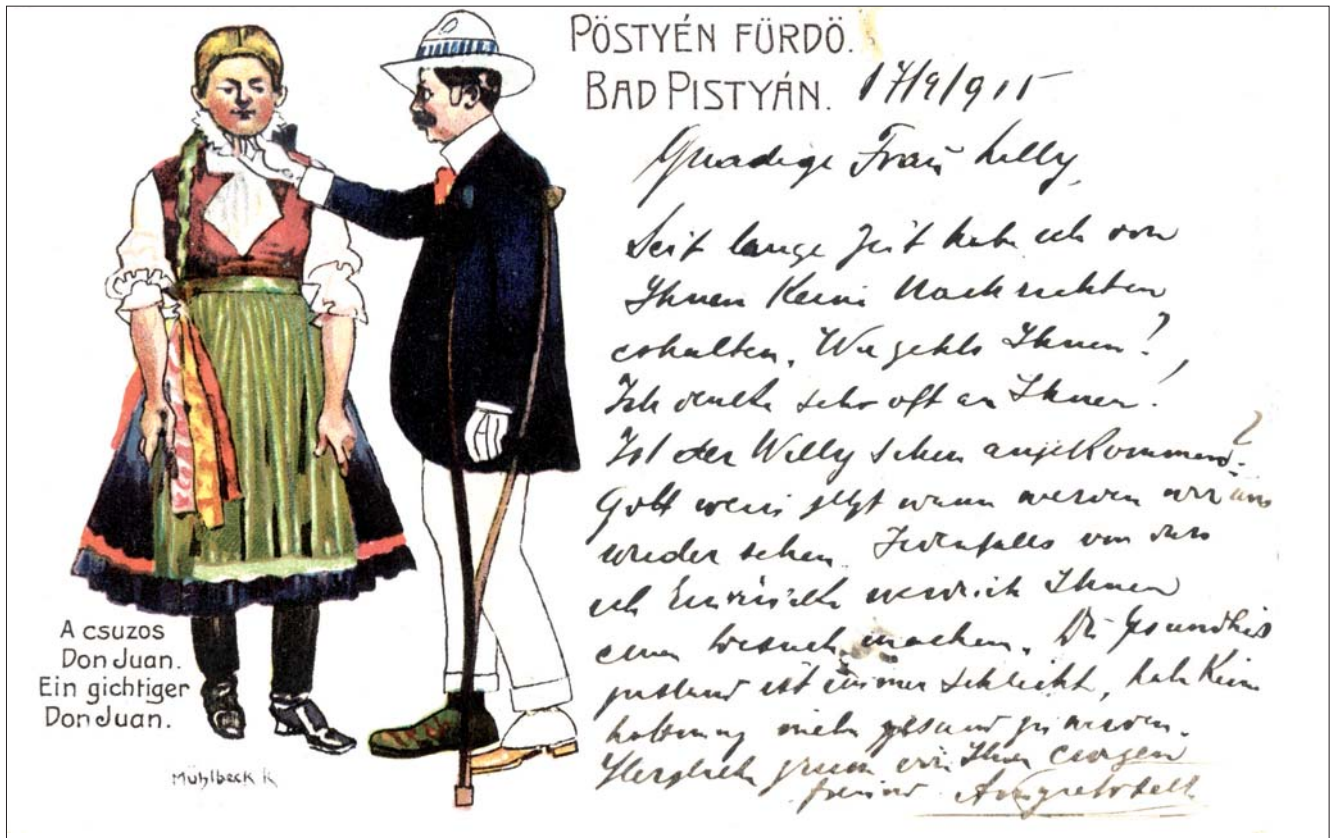 PÖSTYÉN FÜRDŐ.
BAD PISTYÁN.
17/9/915
Gnadige Frau Lilly,
Seit lange Zeit habe ich von
Ihnen Keine Nachrichten
erhalten. Wie gehts Ihnen?
Ich denke sehr oft an Ihnen!
Ist der Willy schon angekommen?
Gott weis jetzt wann werden wir uns
wieder sehen. Jedenfalls
ich Ihnen
einen besuch machen. Die Gesundheis
zustand ist immer schlecht, habe Keine
hoffnung mehr gesund zu werden.
Ihnen
freund
A csuzos
Don Juan.
Ein gichtiger
Don Juan.
Mühlbeck K